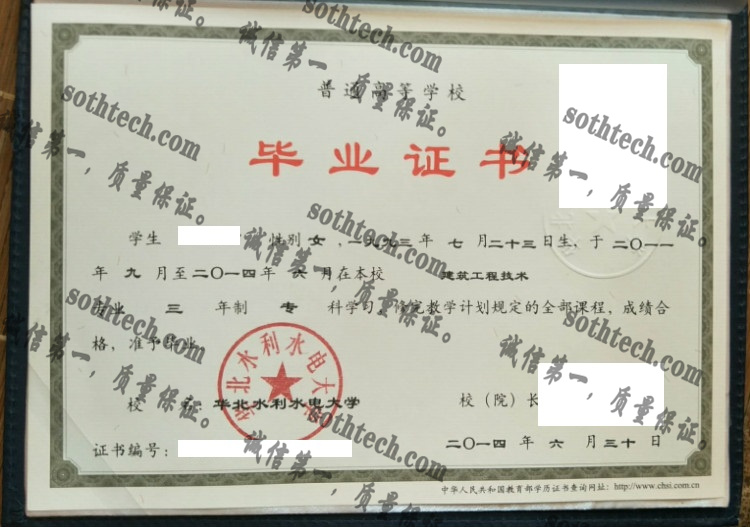 普通高等学校
毕业证书
学生 性别 女 ,一九九三 年 七 月 二十三 日生, 于 二〇一一
年 九 月至 二〇一四 年 六 月在本校 建筑工程技术
专业 三 年制 专 科学习, 修完教学计划规定的全部课程, 成绩合
格, 准予毕业。
华北水利水电大学
校 名: 华北水利水电大学 校（院）长
证书编号: 二〇一四 年 六 月 三十 日
中华人民共和国教育部学历证书查询网址: http://www.chsi.com.cn
sothtech.com
诚信第一，质量保证。
sothtech.com
诚信第一，质量保证。
sothtech.com
诚信第一，质量保证。
sothtech.com
诚信第一，质量保证。
sothtech.com
诚信第一，质量保证。
sothtech.com
诚信第一，质量保证。
sothtech.com
诚信第一，质量保证。